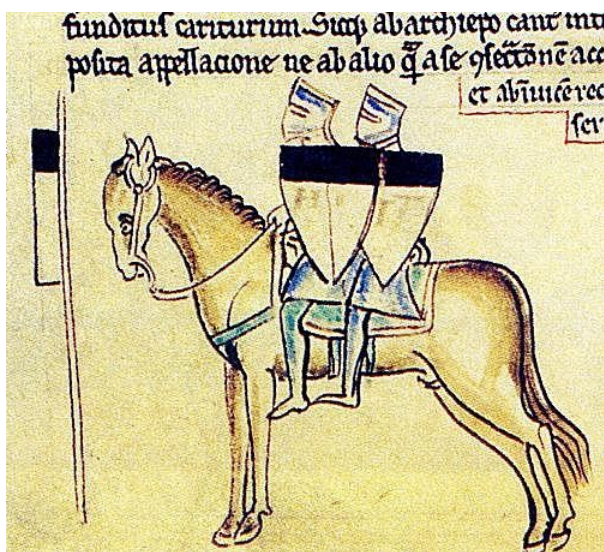 funditus cariturum. Sicq; ab archiepo cant int
posita appellacione ne ab alio q̃ a se ꝯsecc̃onẽ acc
et abiuicẽ rec
ser